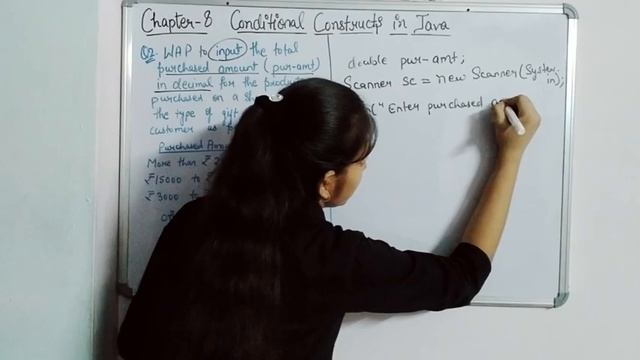 Chapter-8 Conditional Constructs in Java
Q2. WAP to input the total
purchased amount (pur-amt)
in decimal for the
purchases on a
the type of
customer as
Purchased
More than ₹
₹15000 to
₹3000 to
double pur-amt;
Scanner sc = new Scanner(System.
in);
(" Enter purchased